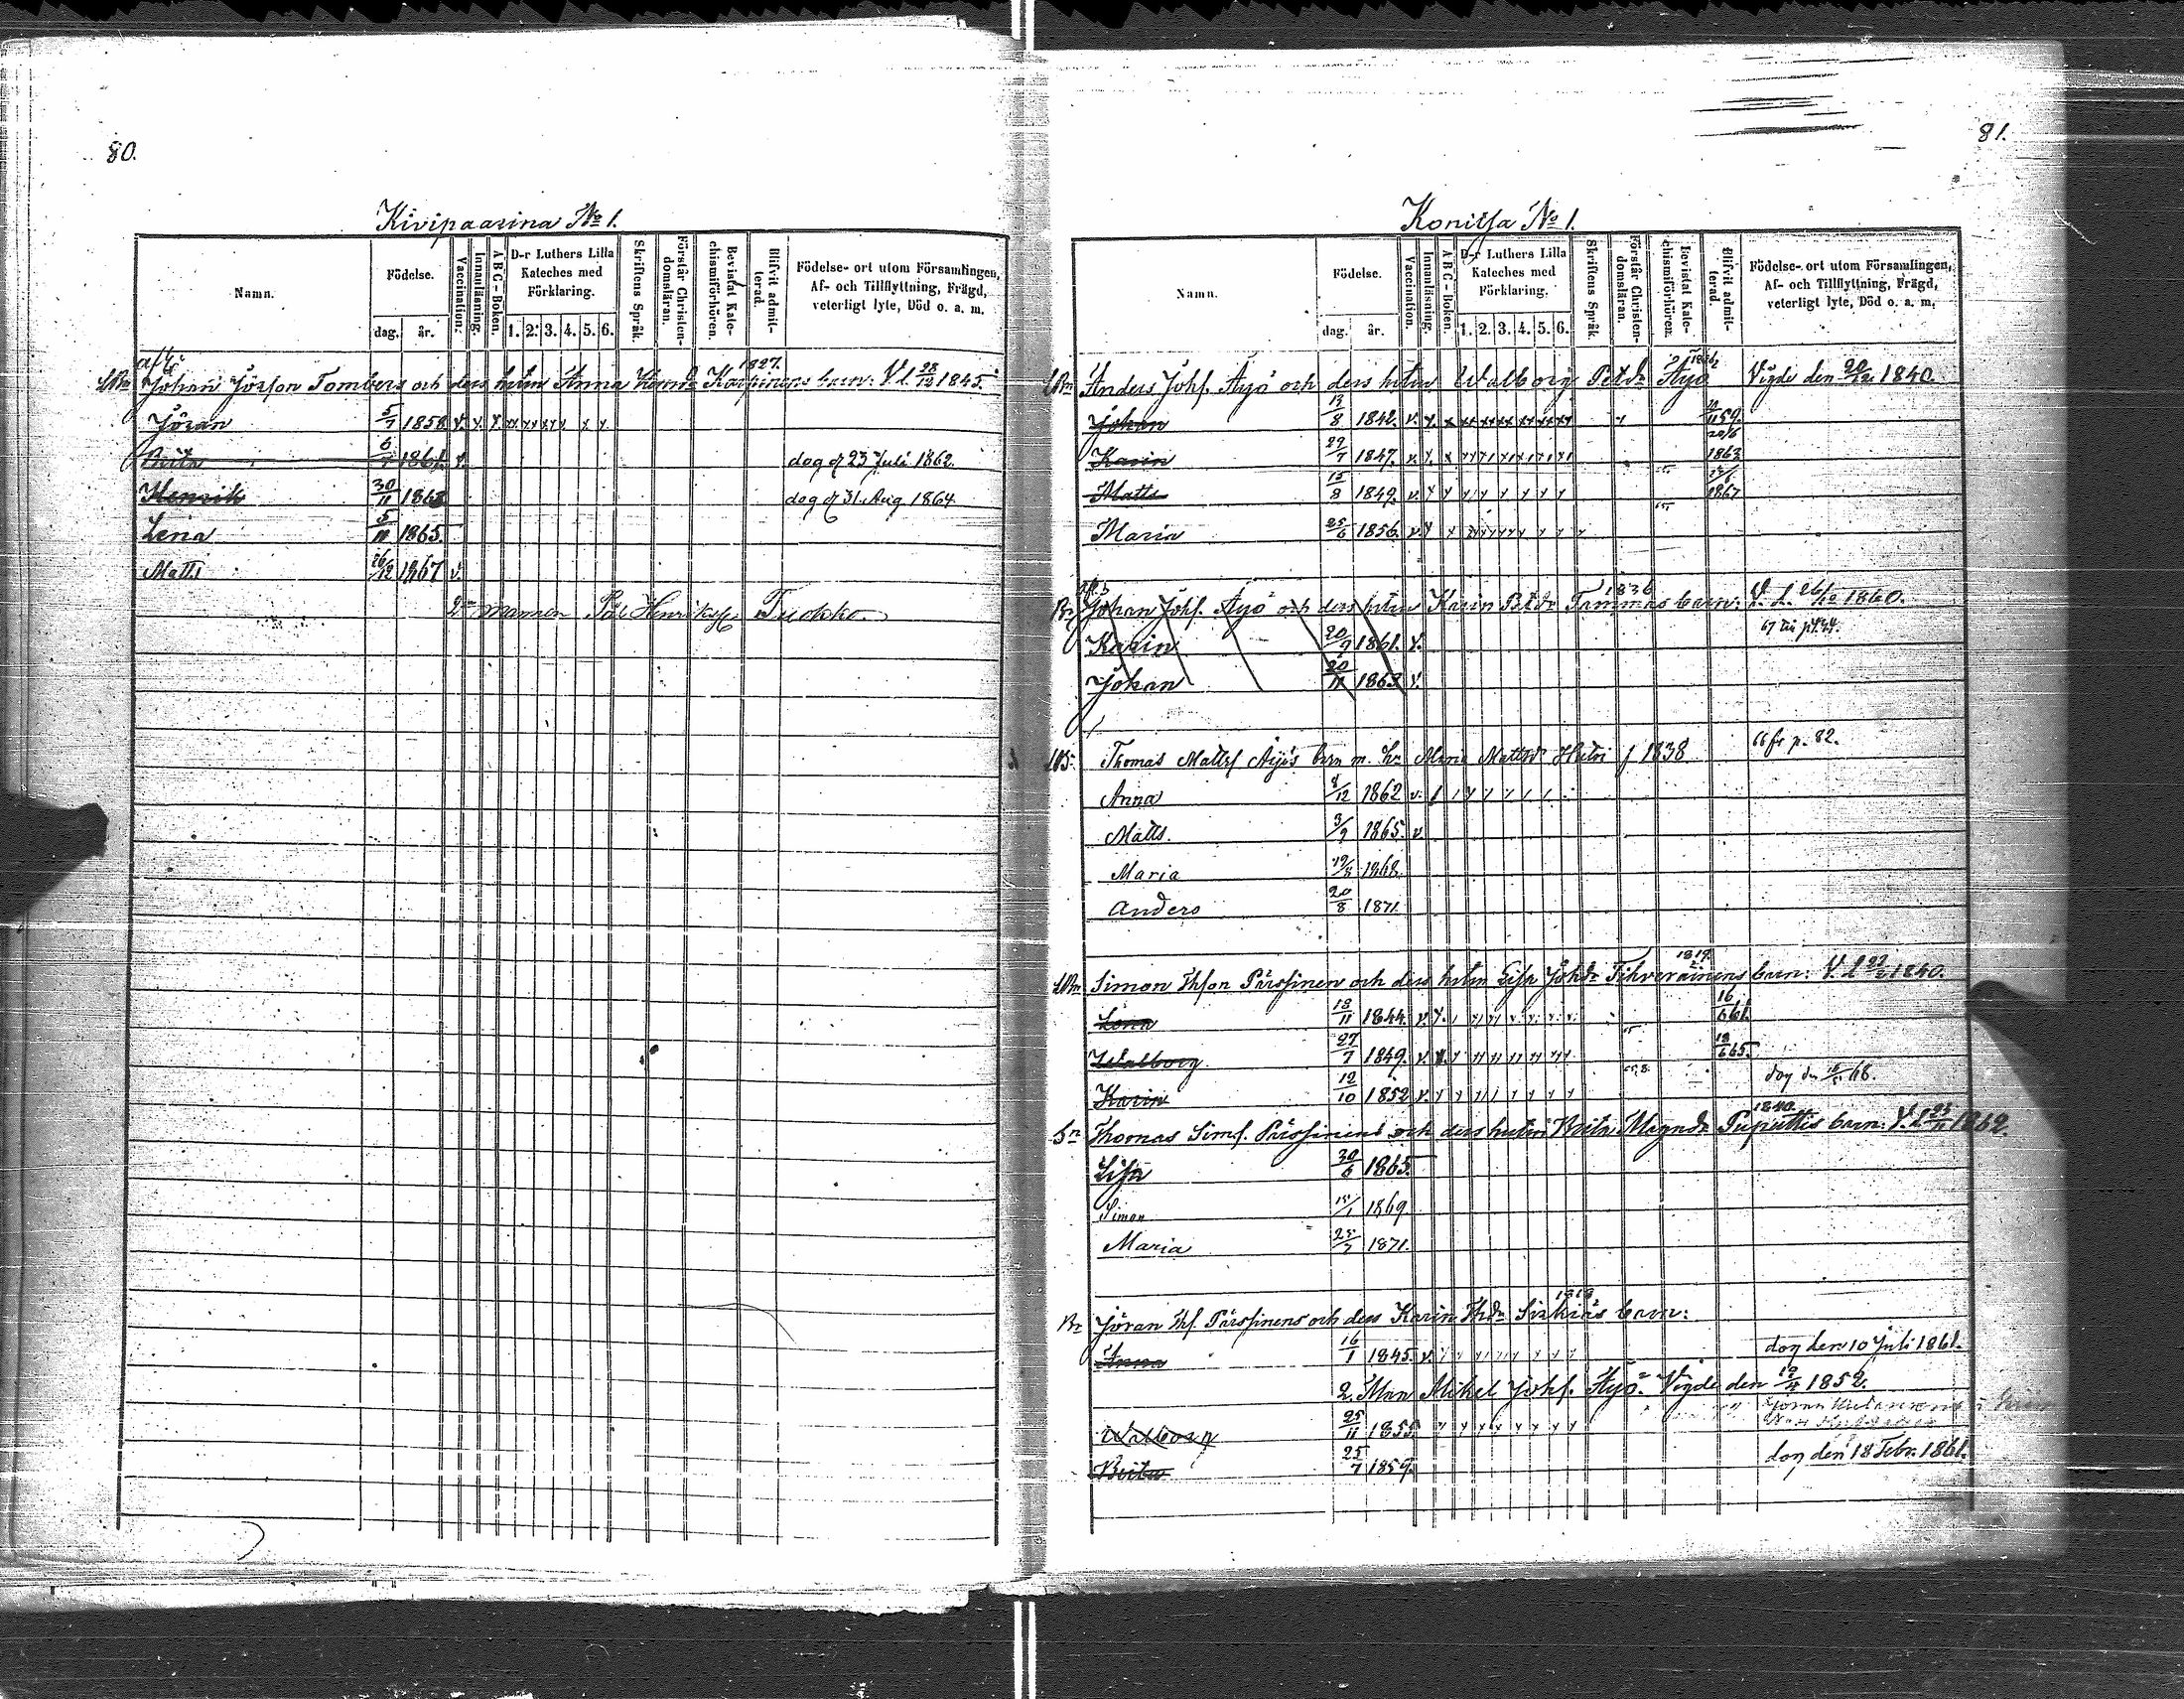 80.
Kivipaarina No 1.
Namn.
Födelse.
dag. år.
Vaccination.
Innanläsning.
ABC-Boken.
D-r Luthers Lilla Kateches med Förklaring.
1. 2. 3. 4. 5. 6.
Skriftens Språk.
Förstår Christendomsläran.
Bevistat Katechismiförhören.
Blifvit admitterad.
Födelse-ort utom Församlingen, Af- och Tillflyttning, Frägd, veterligt lyte, Död o. a. m.
1827.
Johan Jörson Tombers och dess hstru Anna Karpinens barn: V. d. 28/12 1845.
Jöran 5/7 1858
Brita 6/7 1861. dog d 23 Juli 1862.
Henrik 30/11 1863 dog d 31. Aug 1864
Lena 5/11 1865.
Matts 26/12 1867 v.
2n mannen Pål Henriks Tuokko.
81.
Konitsa No 1.
Namn.
Födelse.
dag. år.
Vaccination.
Innanläsning.
ABC-Boken.
D-r Luthers Lilla Kateches med Förklaring.
1. 2. 3. 4. 5. 6.
Skriftens Språk.
Förstår Christendomsläran.
Bevistat Katechismiförhören.
Blifvit admitterad.
Födelse-ort utom Församlingen, Af- och Tillflyttning, Frägd, veterligt lyte, Död o. a. m.
Anders Johs. Äyö och dess hstru Walborg Petdr Äyö Vigde den 20/12 1840.
Johan 13/8 1842. v. 59.
Karin 29/1 1847. v. 20/6 1863
Matts 15/8 1849. v. 1867
Maria 25/6 1856. v.
1836
Br Johan Johs. Äyö och dess hstru Karin Petdr Tammes barn: V. d. 26/12 1860.
Karin 20/9 1861. v.
Johan 20/11 1863 v.
Thomas Matts Äyös barn m. h. Maria Mattsdr Hutri f 1838 66 fr p. 82.
Anna 8/12 1862 v.
Matts. 3/9 1865. v.
Maria 19/8 1868
Anders 20/8 1871
1819.
Simon Thson Pärssinen och dess hstru Lisa Johdr Tihverainens barn: V. d 1840.
Lena 18/11 1844. v. 16/6 61.
Walborg 27/7 1849. v. 18/6 65.
Karin 12/10 1852 v. dog den 68.
1840
Sn Thomas Sims. Pärssinens och dess hstru Brita Magndr Puputtis barn: V. d 1862.
Lisa 30/6 1865.
Simon 1869
Maria 25/7 1871.
Br Jöran Ths. Pärssinens och dess Karin Thdr Sirkiäs barn:
Anna 16/1 1845. v. dog den 10 Juli 1861.
2. Man Mikel Johs. Äyö. Vigde den 1852.
Walborg 25/11 1855
Brita 25/7 1859. dog den 18 Febr. 1861.